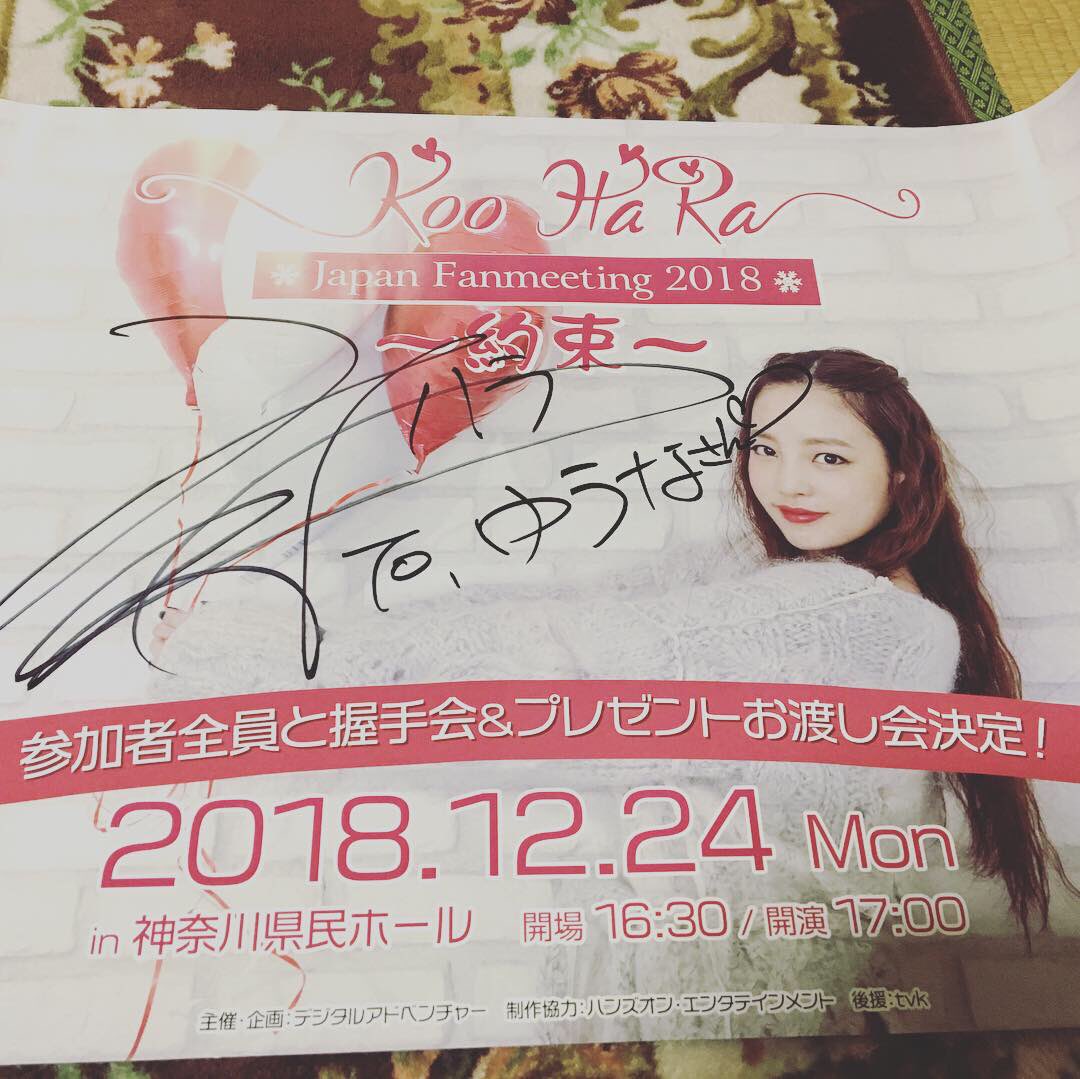 Koo Ha Ra
Japan Fanmeeting 2018
～約束～
ハラ
To, ゆうなさん♡
参加者全員と握手会&プレゼントお渡し会決定!
2018.12.24 Mon
in 神奈川県民ホール 開場 16:30 / 開演 17:00
主催・企画:デジタルアドベンチャー 制作協力:ハンズオン・エンタテインメント 後援:tvk